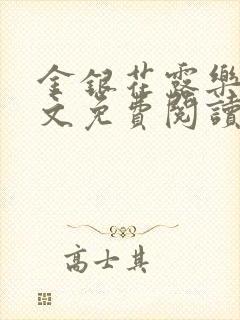 金銀花露樂
文免費閱讀
高士其